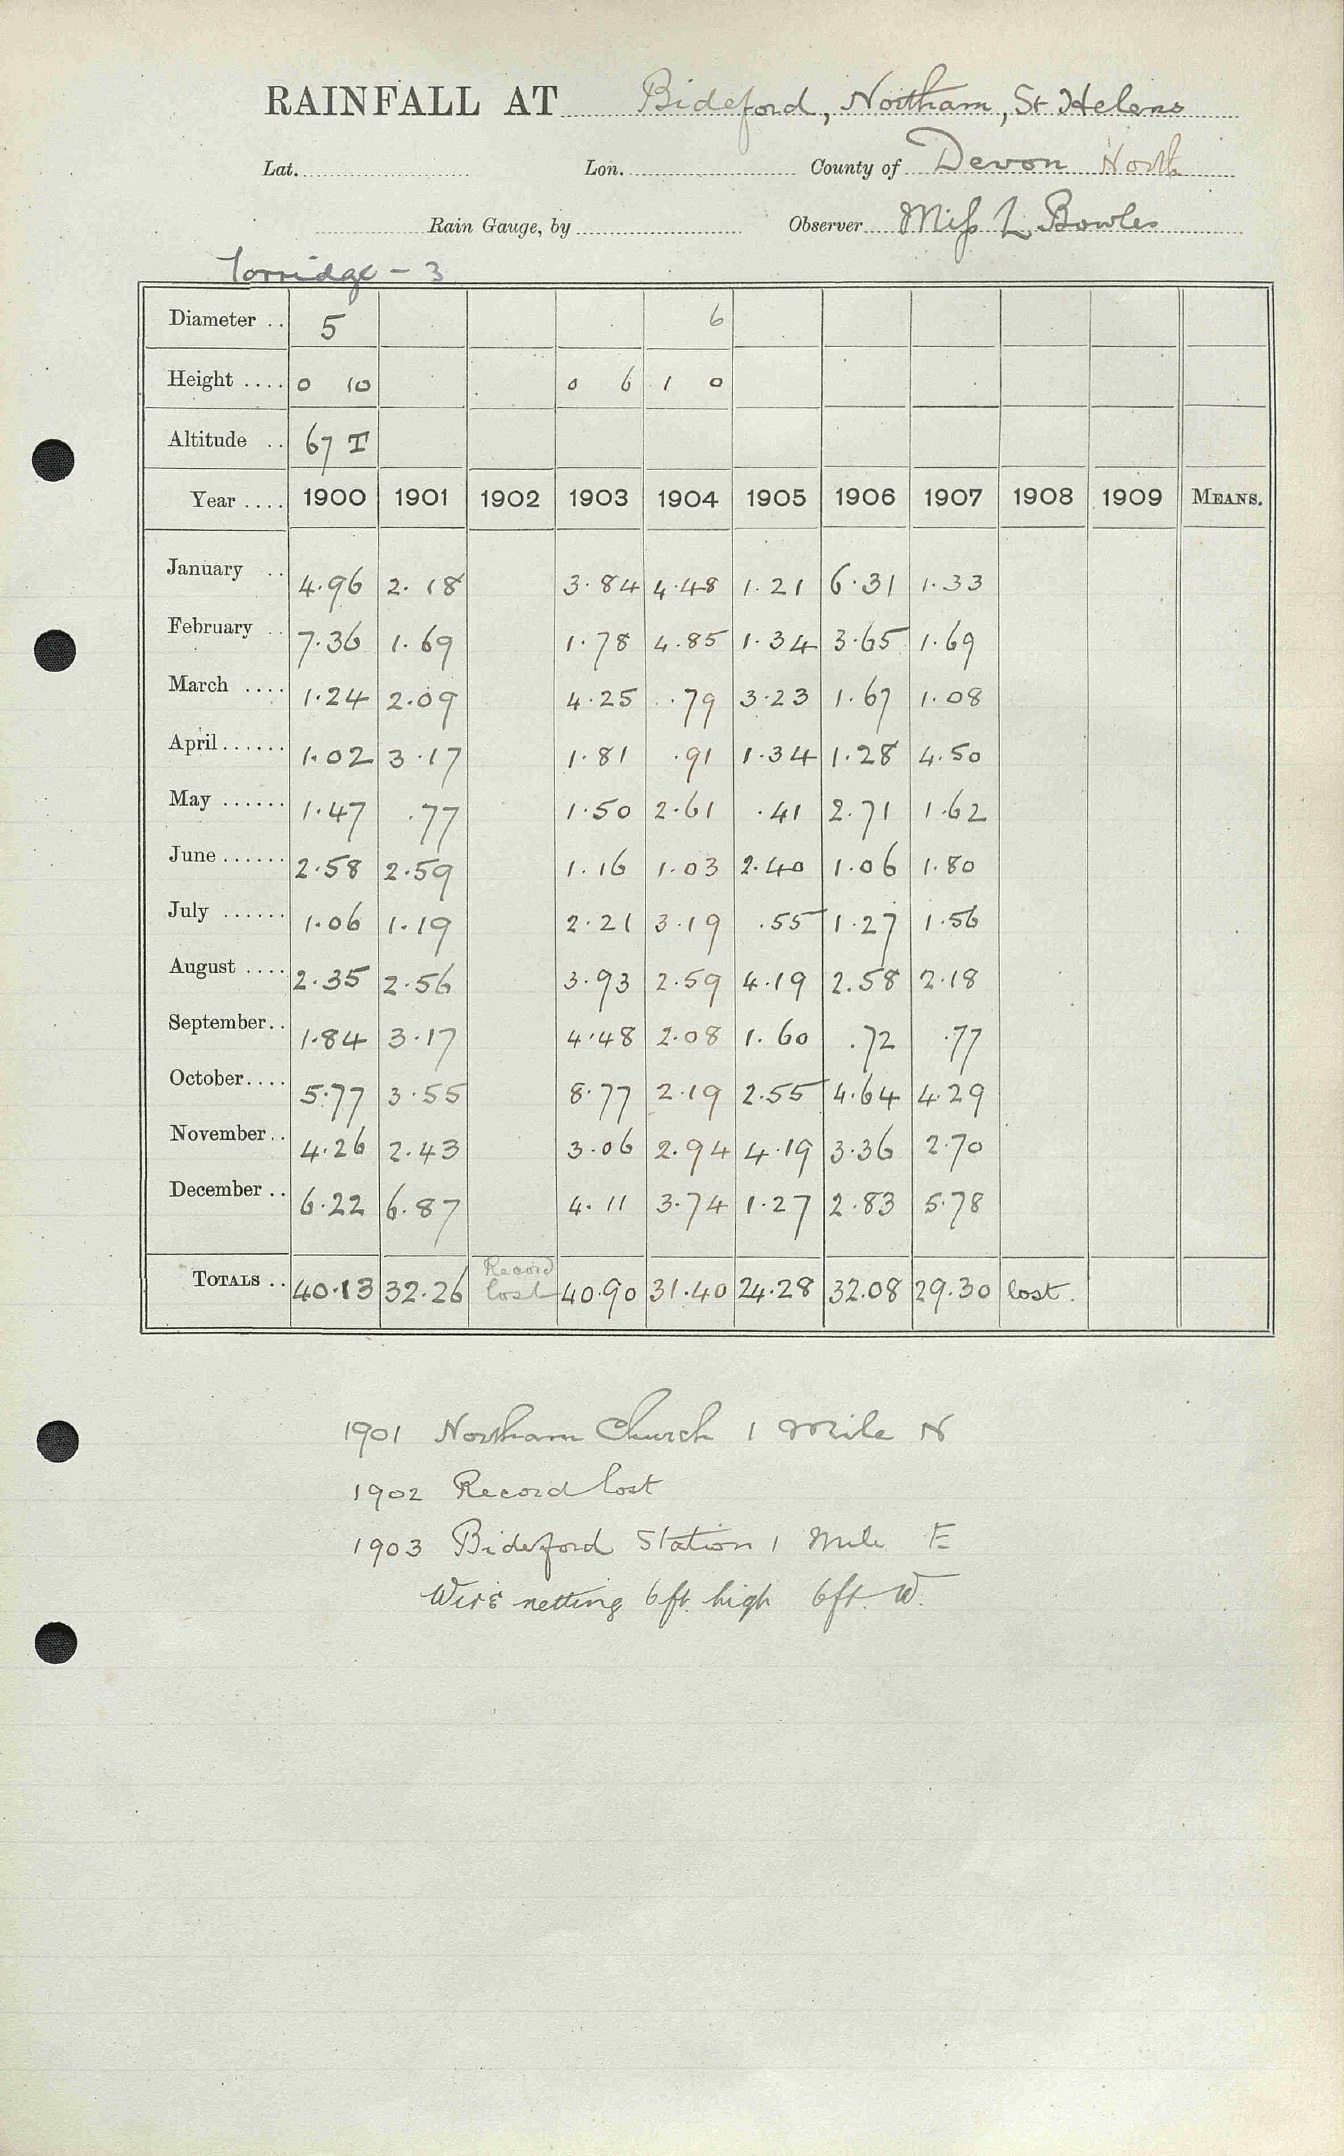 RAINFALL AT Bideford, Northam, St Helens
Lat. Lon. County of Devon North
Rain Gauge, by Observer Miss L Bowles
Torridge - 3
Diameter .. 5 6
Height .... 0 10 0 6 1 0
Altitude .. 67 T
Year .... 1900 1901 1902 1903 1904 1905 1906 1907 1908 1909 MEANS.
January .. 4.96 2.18 3.84 4.48 1.21 6.31 1.33
February .. 7.36 1.69 1.78 4.85 1.34 3.65 1.69
March .... 1.24 2.09 4.25 .79 3.23 1.67 1.08
April...... 1.02 3.17 1.81 .91 1.34 1.28 4.50
May ...... 1.47 .77 1.50 2.61 .41 2.71 1.62
June...... 2.58 2.59 1.16 1.03 2.40 1.06 1.80
July ...... 1.06 1.19 2.21 3.19 .55 1.27 1.56
August .... 2.35 2.56 3.93 2.59 4.19 2.58 2.18
September.. 1.84 3.17 4.48 2.08 1.60 .72 .77
October.... 5.77 3.55 8.77 2.19 2.55 4.64 4.29
November.. 4.26 2.43 3.06 2.94 4.19 3.36 2.70
December .. 6.22 6.87 4.11 3.74 1.27 2.83 5.78
TOTALS .. 40.13 32.26 Record lost 40.90 31.40 24.28 32.08 29.30 lost.
1901 Northam Church 1 Mile N
1902 Record lost
1903 Bideford Station 1 Mile E
Wire netting 6ft. high 6ft. W.